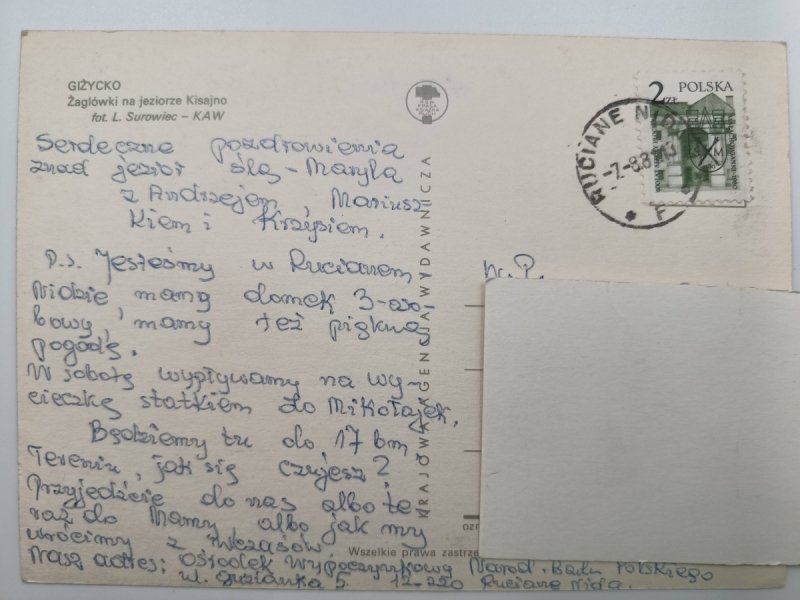 GIŻYCKO
Żaglówki na jeziorze Kisajno
fot. L. Surowiec – KAW
Serdeczne pozdrowienia
znad jezior ślą – Maryla
z Andrzejem, Mariusz-
kiem i Krzysiem.
P.S. Jesteśmy w Rucianem
Nidzie, mamy domek 3-oso-
bowy, mamy też piękną
pogodę.
W sobotę wypływamy na wy-
cieczkę statkiem do Mikołajek.
Będziemy tu do 17 bm.
Tereniu, jak się czujesz?
Przyjedźcie do nas albo te-
raz do Mamy albo jak my
wrócimy z wczasów.
Nasz adres: Ośrodek Wypoczynkowy Narod. Banku Polskiego
ul. Guzianka 5. 12-220 Ruciane Nida.
KRAJOWA AGENCJA WYDAWNICZA
Wszelkie prawa zastrze
2 ZŁ POLSKA
RUCIANE
W.P.